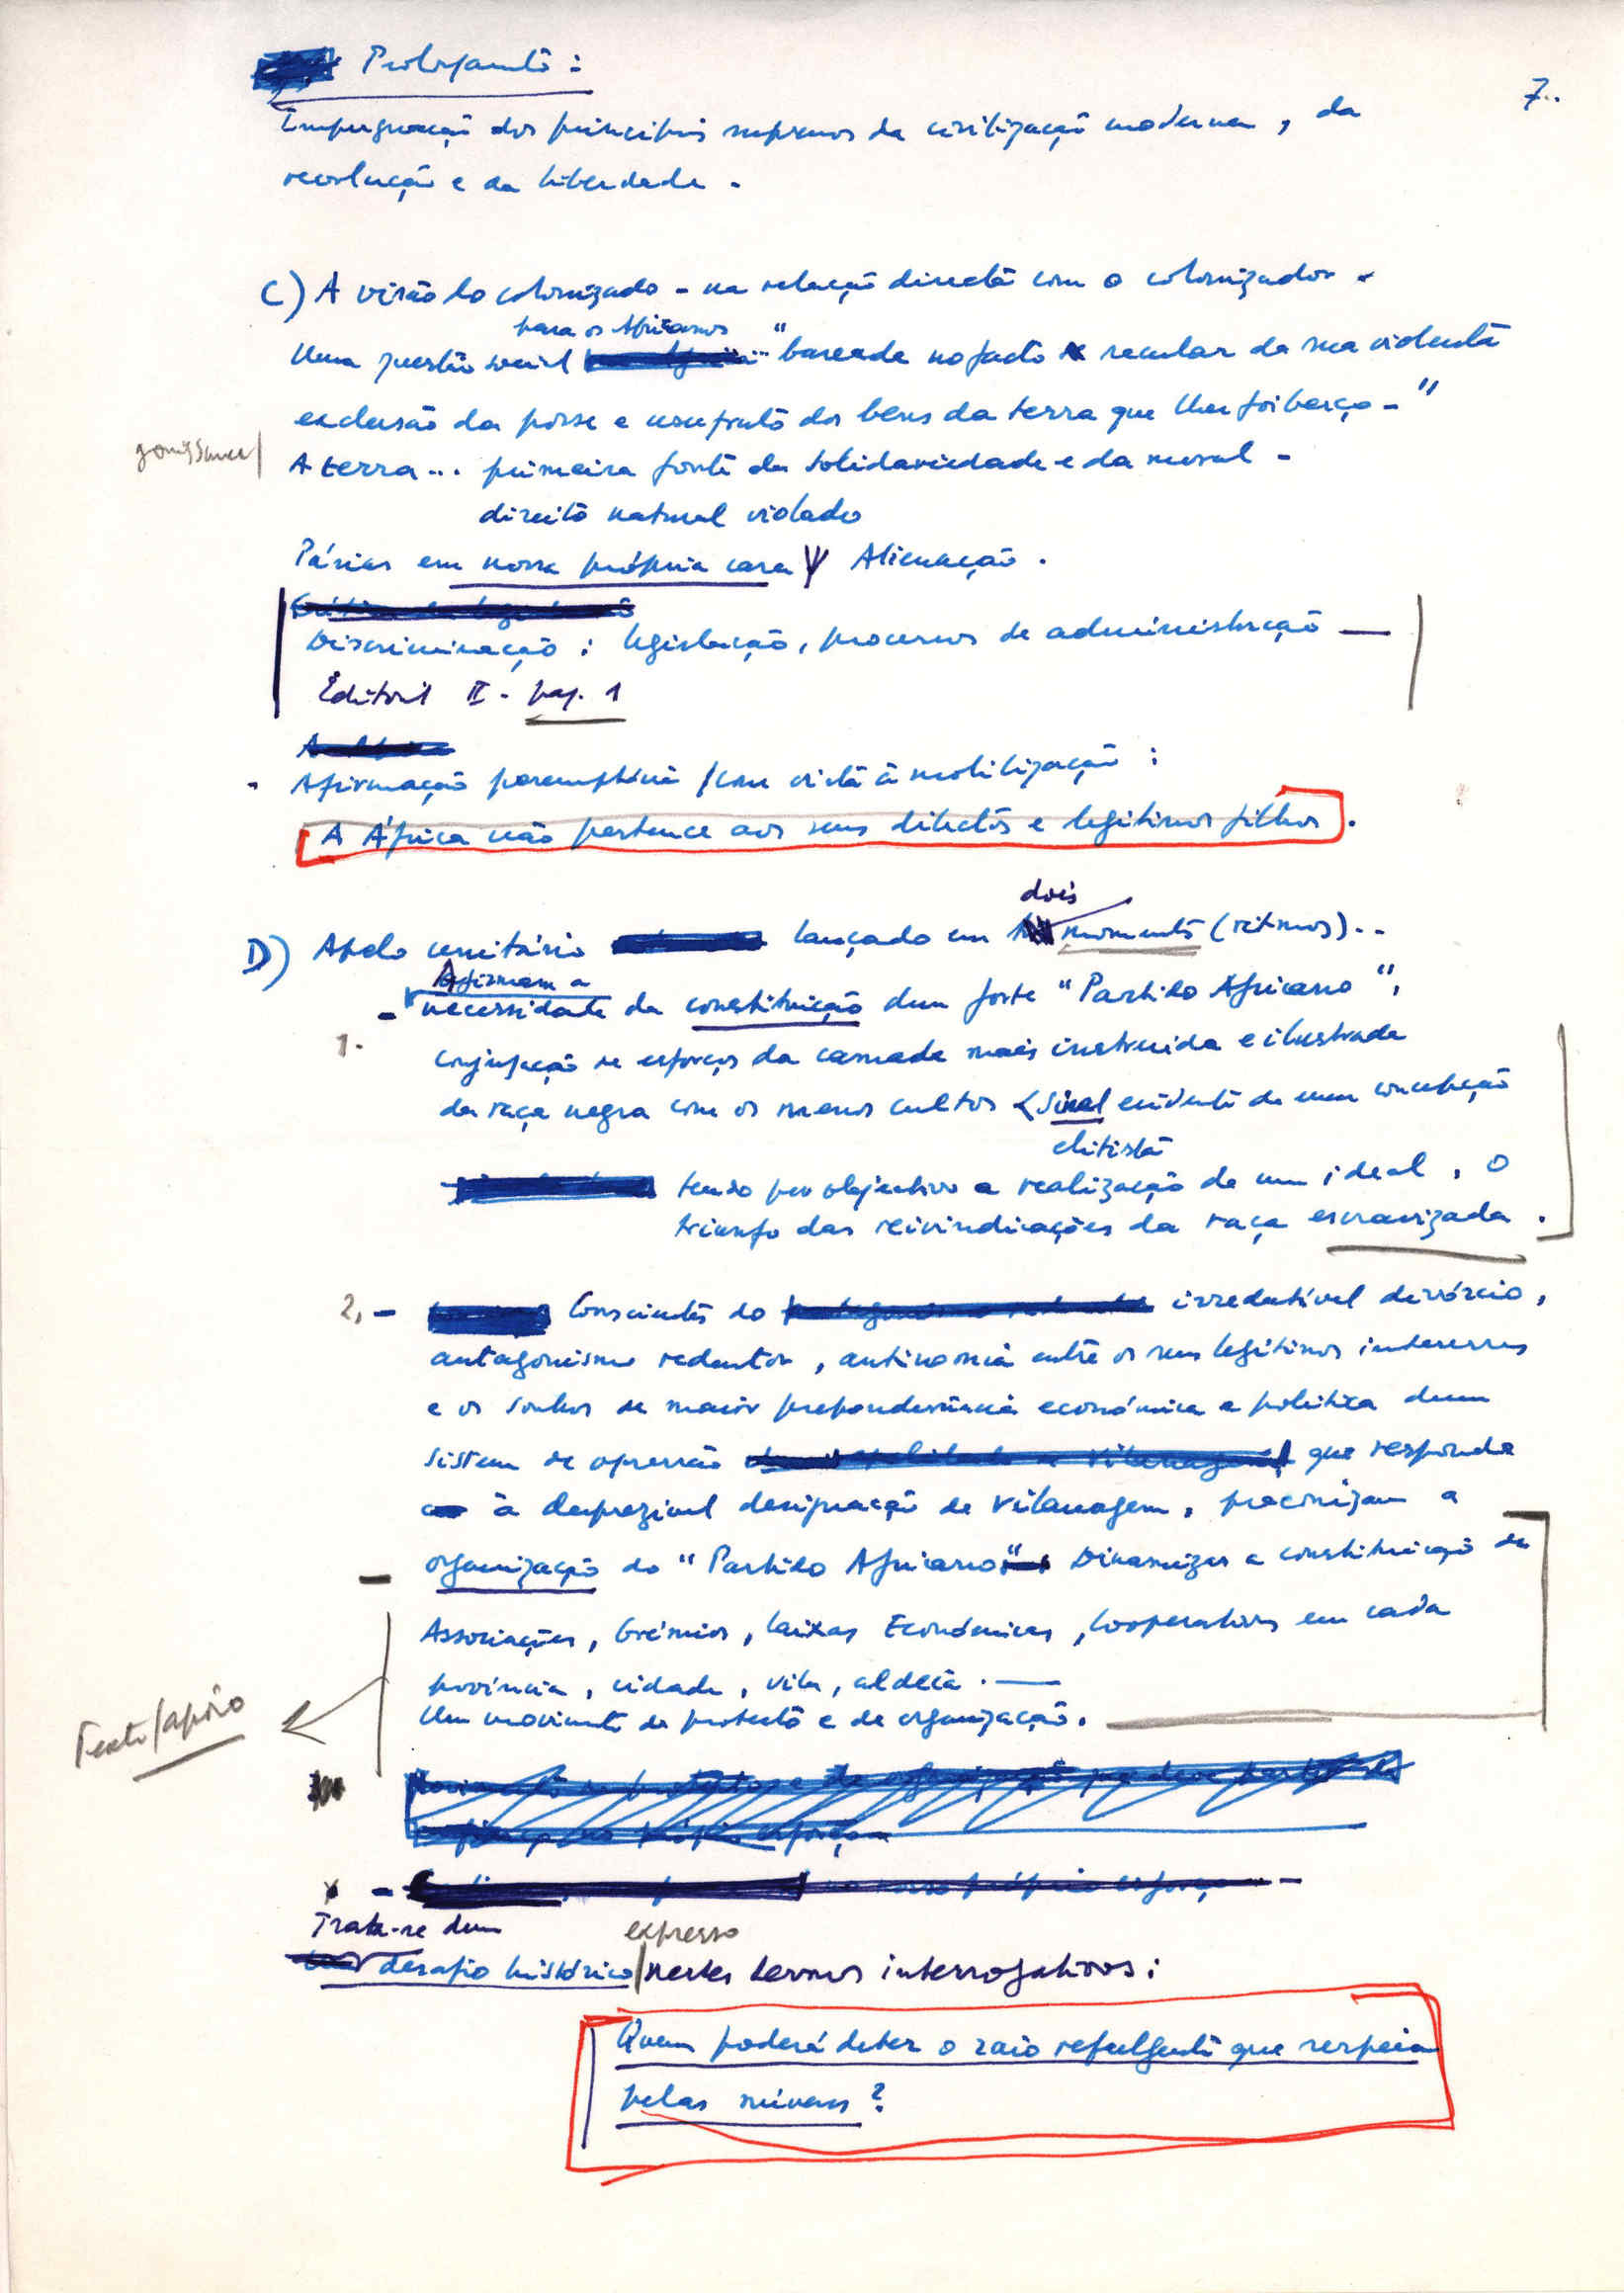 7..
Impugnação dos principios supremos da civilização moderna, da
revolução e da liberdade.
C) A visão do colonizado - na relação directa com o colonizador.
para os Africanos
Uma questão social "baseada no facto secular da sua violenta
exclusão da posse e usufruto dos bens da terra que lhes foi berço."
A terra... primeira fonte da solidariedade e da moral -
direito natural violado
Párias em nossa própria casa Alienação.
Discriminação: legislação, processos de administração —
Editorial II - pag. 1
- Afirmação peremptória / com vista à mobilização:
A África não pertence aos seus dilectos e legitimos filhos.
dois
D) Apelo unitário lançado em momentos (ritmos)..
Afirmam a
- necessidade da constituição dum forte "Partido Africano",
1.
conjugação de esforços da camada mais instruida e ilustrada
da raça negra com os menos cultos (sinal evidente de uma concepção
elitista
tendo por objectivo a realização de um ideal, o
triunfo das reivindicações da raça escravizada.
2, - Conscientes do irredutível divórcio,
antagonismo redentor, antinomia entre os seus legítimos interesses
e os sonhos de maior preponderância económica e politica dum
sistema de opressão que responde
à desprezivel designação de vilanagem, preconizam a
- organização do "Partido Africano" Dinamizar a constituição de
Associações, Grémios, Caixas Económicas, Cooperativas em cada
provincia, cidade, vila, aldeia. —
Um movimento de protesto e de organização.
Texto/apoio
Trata-se dum
expresso
desafio histórico nestes termos interrogativos:
Quem poderá deter o raio refulgente que serpeia
pelas núvens?